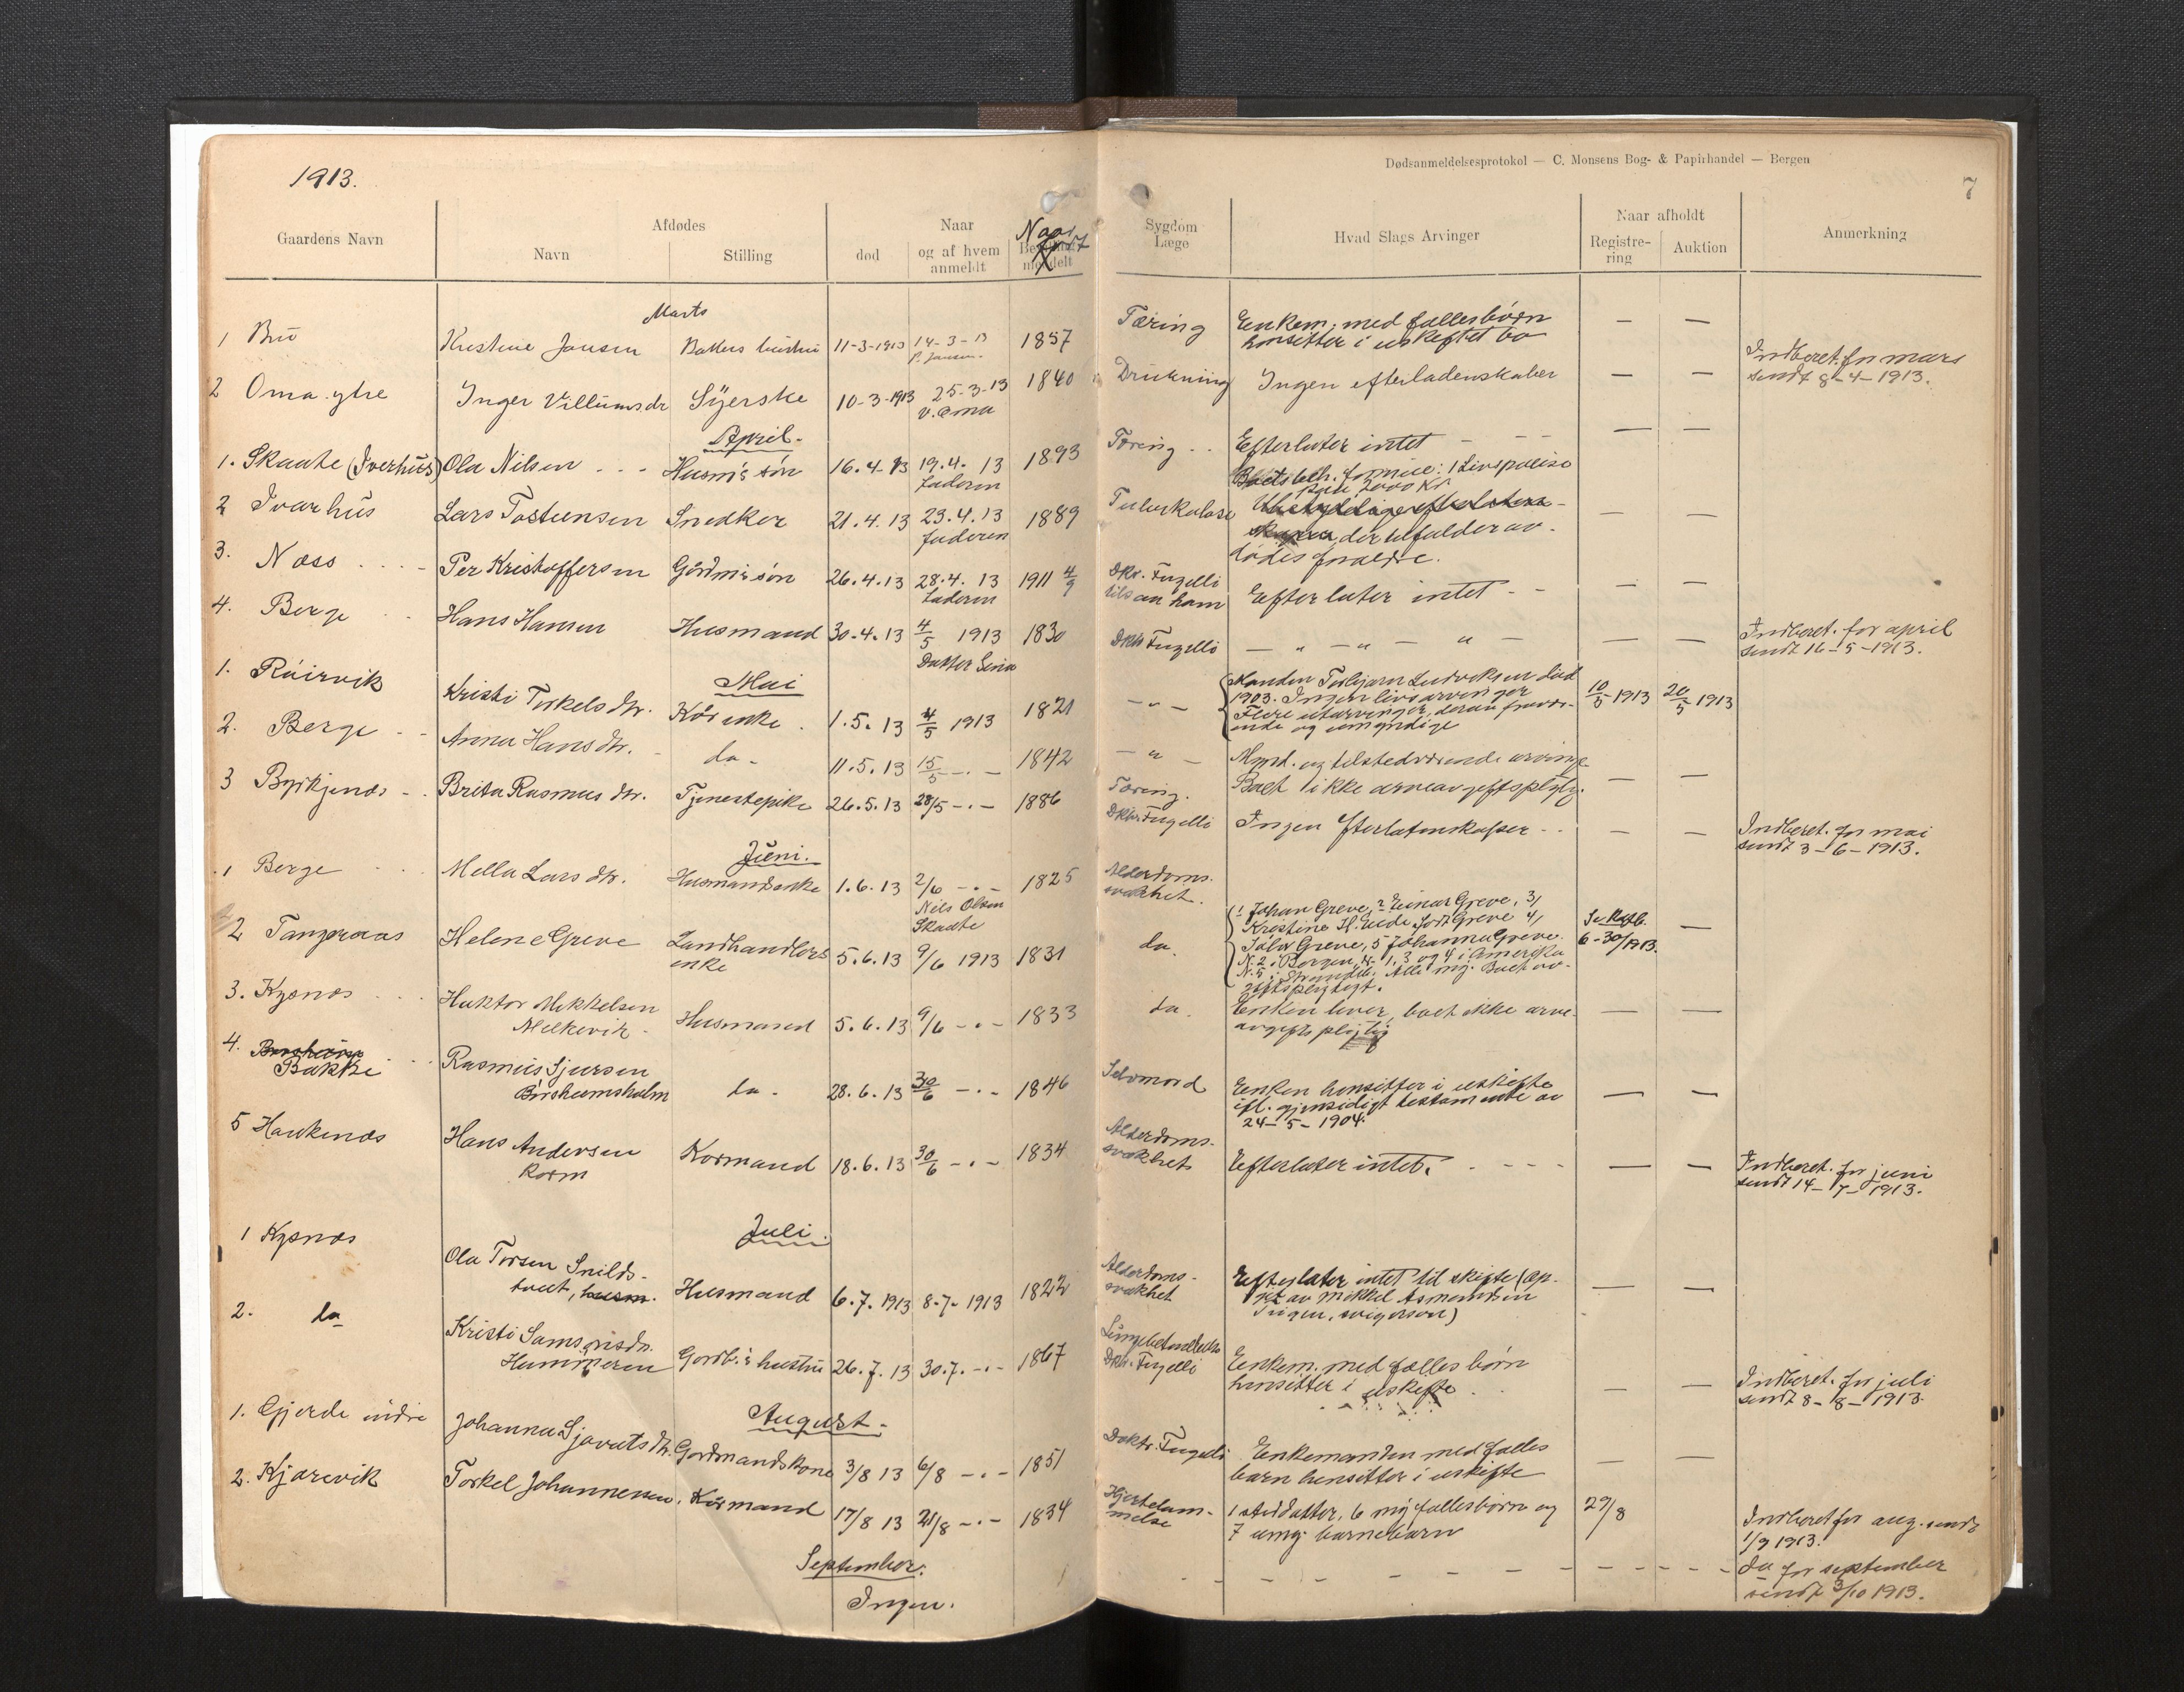 1913.
Dødsanmeldelsesprotokol — C. Monsens Bog- & Papirhandel — Bergen
7
Gaardens Navn
Afdødes
Navn
Stilling
Naar
død
og af hvem anmeldt
Naar født
Sygdom
Læge
Hvad Slags Arvinger
Naar afholdt
Registrering
Auktion
Anmerkning
Marts
1 Bru Kristine Jansen Bakers hustru 11-3-1913 14-3-13 1857 Tæring Enkem. med fællesbörn — —
P. Jansen. hensitter i uskiftet bo
Indberet. for mars
sendt 8-4-1913.
2 Oma ytre Inger Villumsdr Syerske 10-3-1913 25-3-13 1840 Drukning Ingen efterladenskaber — —
V. Oma
April.
1. Skaate (Iverhus) Ola Nilsen Husm's søn 16.4.13 19.4.13 1893 Tæring Efterlater intet — —
faderen
2 Ivarhus Lars Tostensen Snedker 21.4.13 23.4.13 1889 Tuberkulose — —
faderen
Boets formue: 1 Livspolise
2000 Kr
der tilfalder av-
dødes forældre.
3. Næss Per Kristoffersen Gårdm's søn 26.4.13 28.4.13 1911 4/9 Dkr. Fugelli Efterlater intet — —
faderen tilsaa ham
4. Berge Hans Hansen Husmand 30.4.13 4/5 1913 1830 Dktr Fugelli — " — " — " — — —
Datter Sina
Indberet. for april
sendt 16-5-1913.
Mai
1. Röirvik Kristi Torkelsdtr. Kårenke 1.5.13 4/5 1913 1821 — " — 10/5 1913 20/5 1913
Manden Torbjørn Ludviksen død
1903. Ingen livsarvinger
Flere utarvinger, derav fravæ-
rende og umyndige
2. Berge Anna Hansdtr. do 11.5.13 15/5 — " — 1842 — " — Mynd. og tilstedværende arvinge — —
Boet ikke arveavgiftspligtig.
3 Byrkjenæs Brita Rasmusdtr. Tjenestepike 26.5.13 28/5 — " — 1886 Tæring. Ingen Efterlatenskaper — —
Dktr. Fugelli
Indberet. for mai
sendt 3-6-1913.
Juni.
1 Berge Mella Larsdtr. Husmandsenke 1.6.13 2/6 — " — 1825 Alderdoms-
svakhet.
Nils Olsen
Skaate
2 Tangeraas Helene Greve Landhandlers 5.6.13 9/6 1913 1831 do.
enke
1 Johan Greve, 2 Einar Greve, 3,
Kristine H. født Greve 4,
Greve, 5 Johanna Greve.
N. 2 i Bergen, N. 1, 3 og 4 i Amerika
N. 5 i Alle myn. Boet av-
giftspligtigt.
6-30/1913. —
3. Kysnæs Haktor Mikkelsen Husmand 5.6.13 9/6 — " — 1833 do. Enken lever, boet ikke arve- — —
Melkevik avgiftspligtig
4. Bakke Rasmus Sjursen do. 28.6.13 30/6 — " — 1846 Selvmord Enken hensitter i uskifte — —
Börsheimsholm ifl. gjensidigt testamente av
24-5-1904.
5 Haukenæs Hans Andersen Kormand 18.6.13 30/6 — " — 1834 Alderdoms- Efterlater intet. — —
Korm svakhet
Indberet. for juni
sendt 14-7-1913.
Juli.
1 Kysnæs Ola Torsen Snilds- Husmand 6.7.1913 8.7.1913 1822 Alderdoms- Efterlater intet til skifte (Op- — —
tveit, husm. svakhet git av Mikkel Asmundsen
svigersøn)
2. do Kristi Samsonsdr. Gardbr.s hustru 26.7.13 30.7. — " — 1867 Lungebetændelse Enkem. med fælles børn — —
Dktr. Fugelli hensitter i uskifte
Indberet. for juli
sendt 8-8-1913.
August.
1. Gjerde indre Johanna Sjovatsdtr. Gardmandskone 3/8 13 6/8 — " — 1851 Doktr. Fugelli Enkemanden med fælles — —
barn hensitter i uskifte
2. Kjærevik Torkel Johannesen. Kårmand 17/8 13 21/8 — " — 1834 Hjertelam- 1 steddatter, 6 my fællesbörn og 29/8
melse 7 umy. barnebarn
Indberet for aug. sendt
1/9 1913.
September.
Ingen.
do for september
sendt 3/10 1913.